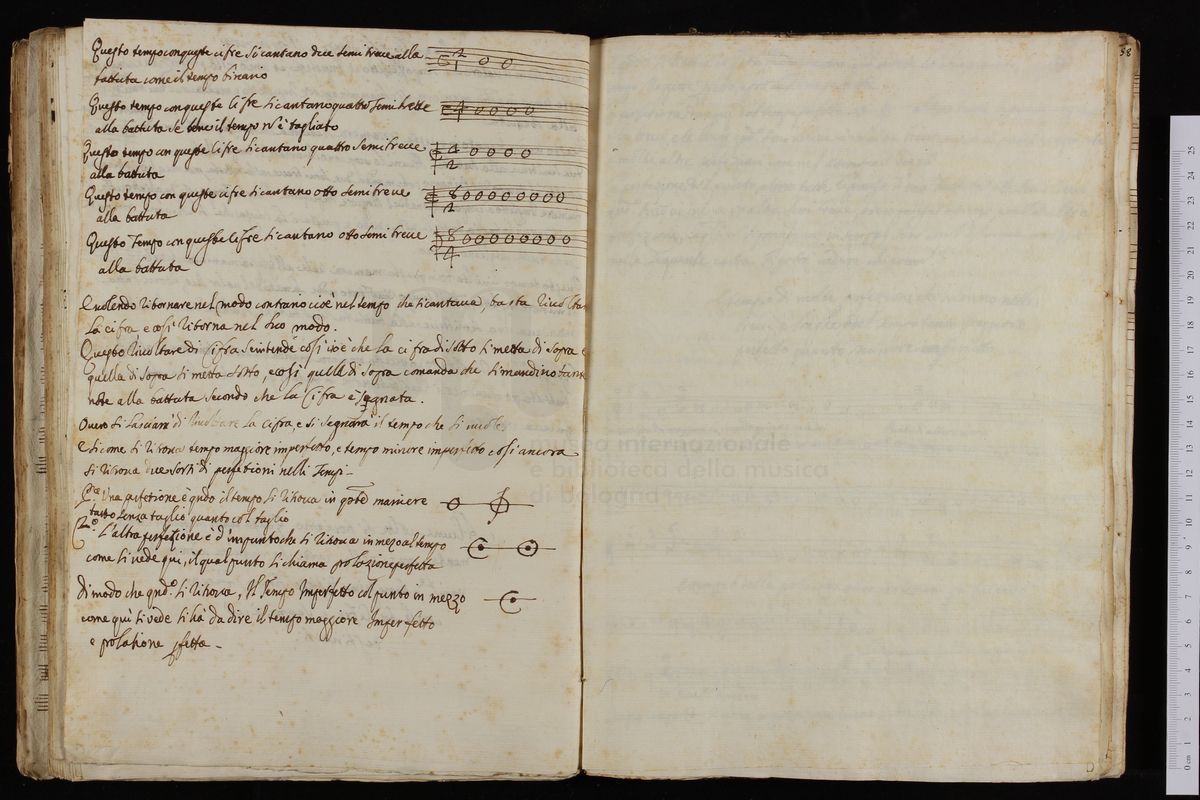 Questo tempo con queste cifre si cantano due semibreve alla
battuta come il tempo binario
Questo tempo con queste cifre si cantano quattro semibreve
alla battuta se bene il tempo n'è tagliato
Questo tempo con queste cifre si cantano quattro semibreve
alla battuta
Questo tempo con queste cifre si cantano otto semibreve
alla battuta
Questo Tempo con queste cifre si cantano otto semibreve
alla battuta
E volendo ritornare nel modo contrario cioè nel tempo che si cantava, basta
la cifra e così ritorna nel suo modo.
Questo rivoltare di cifra s'intende così cioè che la cifra di sotto si metta di sopra e
quella di sopra si metta sotto, e così quella di sopra comanda che si mandino tante
note alla battuta secondo che la cifra è segnata.
Overo si lasciarà di rivoltare la cifra, e si segnarà il tempo che si vuole
E sicome si ritrova tempo maggiore imperfetto, e tempo minore imperfetto così ancora
si ritrova due sorti di perfetioni nelli Tempi
P.ª Una perfetione è qndo il tempo si ritrova in maniere
tanto senza taglio quanto col taglio
2.º L'altra perfetione è d'un punto che si ritrova in mezo al tempo
come si vede qui, il qual punto si chiama prolazione perfetta
Di modo che qnd.º si ritrova, Il Tempo Imperfetto col punto in mezzo
come quì si vede si hà da dire il tempo maggiore Imperfetto
e prolatione pfetta.
38
museo internazionale
e biblioteca della musica
di bologna
25
24
23
22
21
20
19
18
17
16
15
14
13
12
11
10
9
8
7
6
5
4
3
2
1
0 cm